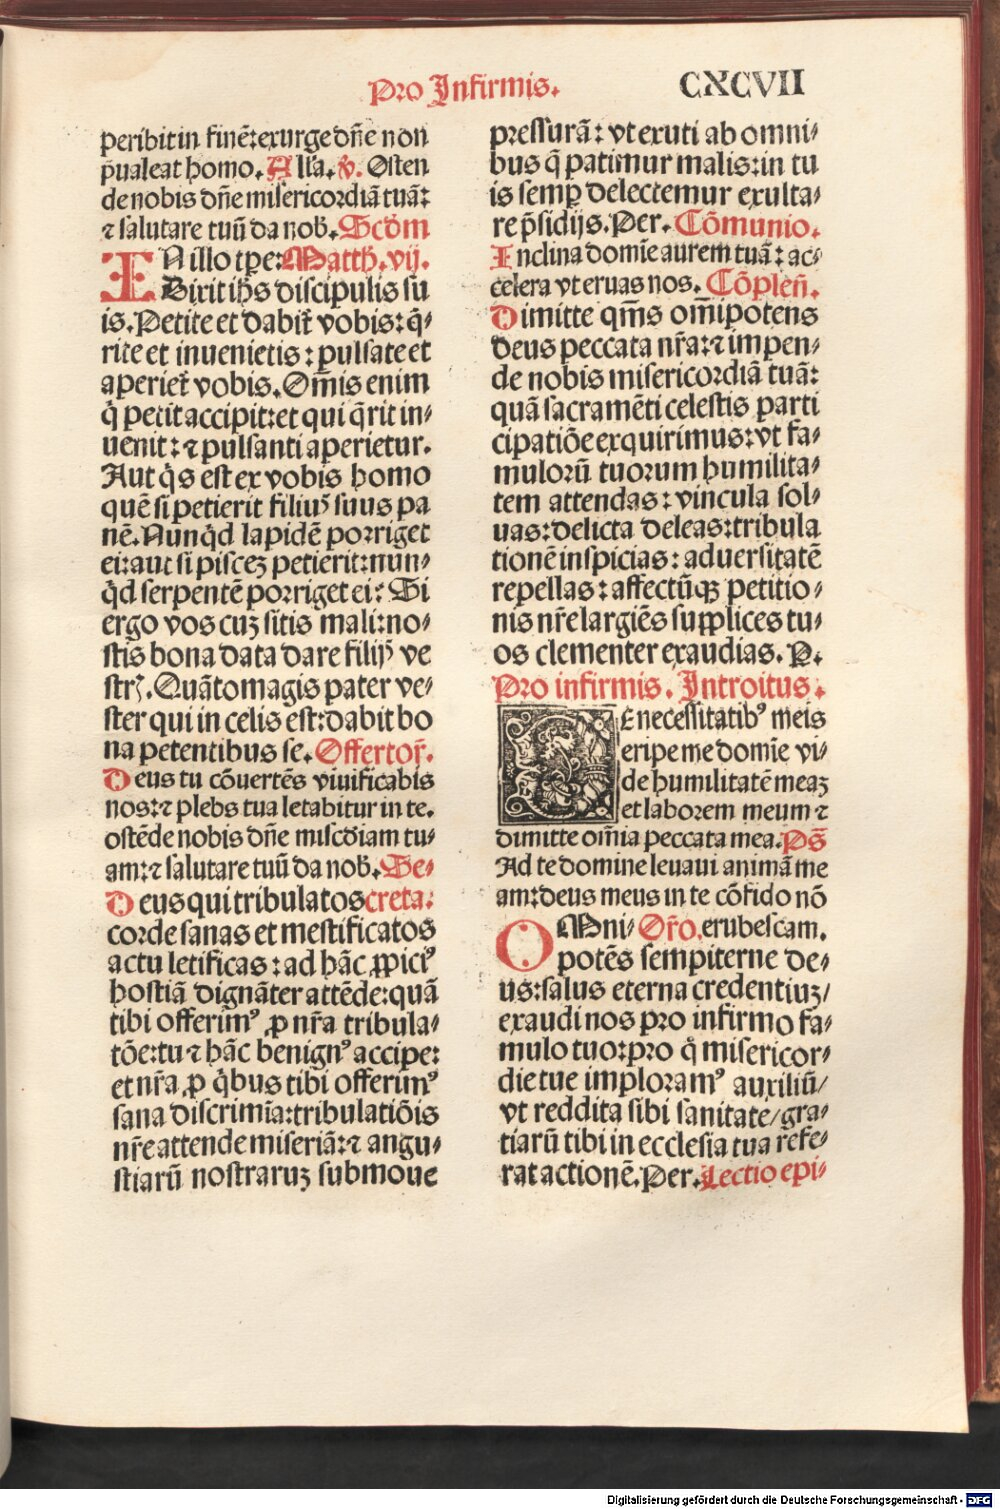 Pro Infirmis.
CXCVII
peribit in finē: exurge dñe non
p̄ualeat homo. Alła. ℣. Osten
de nobis dñe misericordiā tuā:
⁊ salutare tuū da nob̄. Scd̄m
IN illo tp̄e: Matth. vij.
Dixit ihs̄ discipulis su
is. Petite et dabit᷑ vobis: q̄⸗
rite et inuenietis: pulsate et
aperiet᷑ vobis. Om̄is enim
q̇ petit accipit: et qui q̄rit in⸗
uenit: ⁊ pulsanti aperietur.
Aut q̇s est ex vobis homo
quē si petierit filiuꝰ suus pa
nē. Nunq̇d lapidē porriget
ei: aut si piscez petierit: nun⸗
q̇d serpentē porriget ei: Si
ergo vos cuz sitis mali: no⸗
stis bona data dare filijꝰ ve
strꝭ. Quātomagis pater ve⸗
ster qui in celis est: dabit bo
na petentibus se. Offertor̄.
Deus tu cōuertēs viuificabis
nos: ⁊ plebs tua letabitur in te.
ostēde nobis dñe misc̄diam tu⸗
am: ⁊ salutare tuū da nob̄. Se⸗
Deus qui tribulatos creta:
corde sanas et mestificatos
actu letificas: ad hāc ꝓpiciꝰ
hostiā dignāter attēde: quā
tibi offerimꝰ ꝓ nr̄a tribula⸗
tōe: tu ⁊ hāc benignꝰ accipe:
et nr̄a ꝓ q̇bus tibi offerimꝰ
sana discrimīa: tribulatiōis
nr̄e attende miseriā: ⁊ angu⸗
stiarū nostraruz submoue
pressurā: vt exuti ab omni⸗
bus q̄ patimur malis: in tu
is semꝑ delectemur exulta⸗
re p̄sidijs. Per. Cōmunio.
Inclina domīe aurem tuā: ac⸗
celera vt eruas nos. Cōpleñ.
Dimitte qm̄s om̄ipotens
deus peccata nr̄a: ⁊ impen⸗
de nobis misericordiā tuā:
quā sacramēti celestis parti
cipatiōe exquirimus: vt fa⸗
mulorū tuorum humilita⸗
tem attendas: vincula sol⸗
uas: delicta deleas: tribula
tionē inspicias: aduersitatē
repellas: affectūqꝫ petitio⸗
nis nr̄e largiēs supplices tu⸗
os clementer exaudias. P.
Pro infirmis. Introitus.
DE necessitatibꝰ meis
eripe me domīe vi⸗
de humilitatē meaz
et laborem meum ⁊
dimitte om̄ia peccata mea. Ps̄
Ad te domine leuaui animā me
am: deus meus in te cōfido nō
OMni⸗ Or̄o. erubescam.
potēs sempiterne de⸗
us: salus eterna credentiuz/
exaudi nos pro infirmo fa⸗
mulo tuo: pro q̇ misericor⸗
die tue imploramꝰ auxiliū/
vt reddita sibi sanitate/ gra⸗
tiarū tibi in ecclesia tua refe⸗
rat actionē. Per. Lectio epi⸗
Digitalisierung gefördert durch die Deutsche Forschungsgemeinschaft - DFG